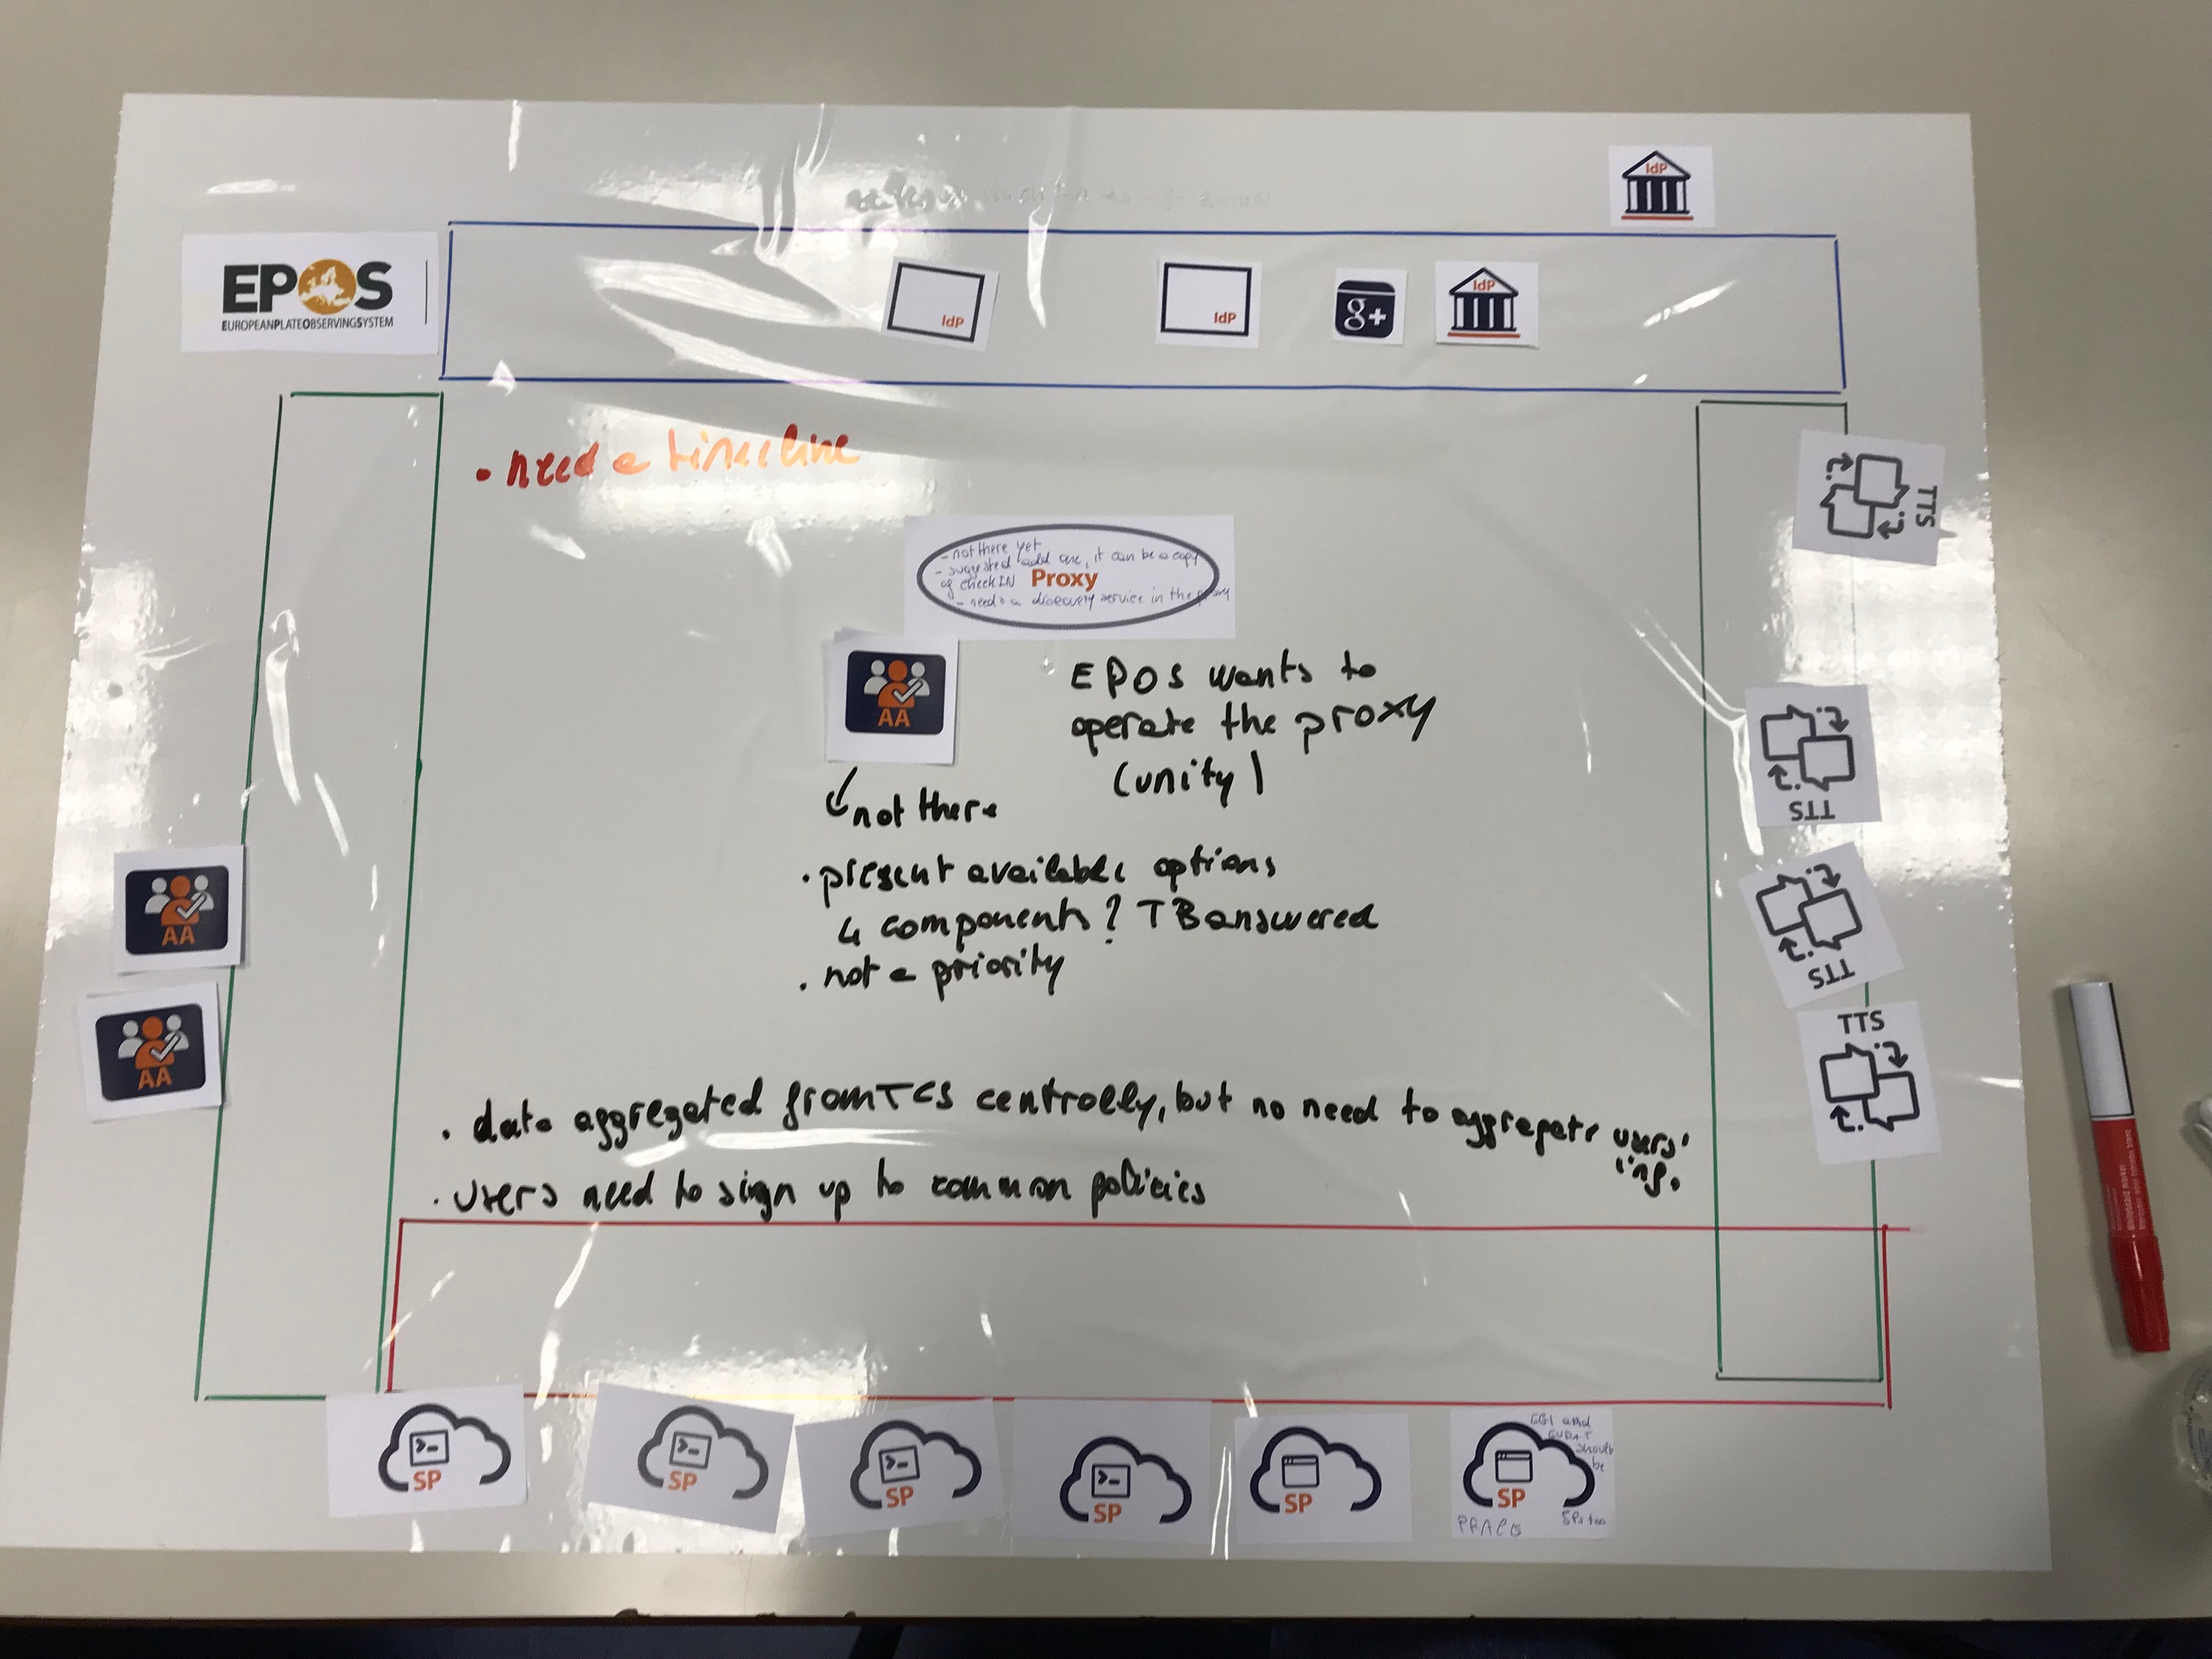 IdP
EPOS
EUROPEANPLATEOBSERVINGSYSTEM
IdP
IdP
g+
IdP
• need a timeline
TTS
- not there yet
- suggested add one, it can be a copy
of checkIN Proxy
- needs a discovery service in the proxy
AA
EPOS wants to
operate the proxy
(unity)
not there
TTS
• present available options
4 components? TBanswered
• not a priority
AA
TTS
AA
TTS
• data aggregated from TCS centrally, but no need to aggregate users'
inf.
• users need to sign up to common policies
SP
SP
SP
SP
SP
EGI and
EUDAT
should
be
SP
PRACE
SPs too